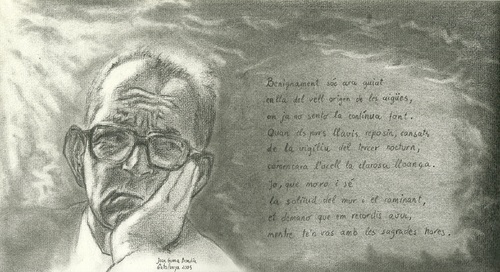 Benignament sóc ara guiat
enllà del vell origen de les aigües,
on ja no sento la contínua font.
Quan els purs llavis reposin, cansats
de la vigília del tercer nocturn,
començarà l'ocell la clarosa lloança.
Jo, que moro i sé
la solitud del mur i el caminant,
et demano que em recordis avui,
mentre te'n vas amb les sagrades hores.